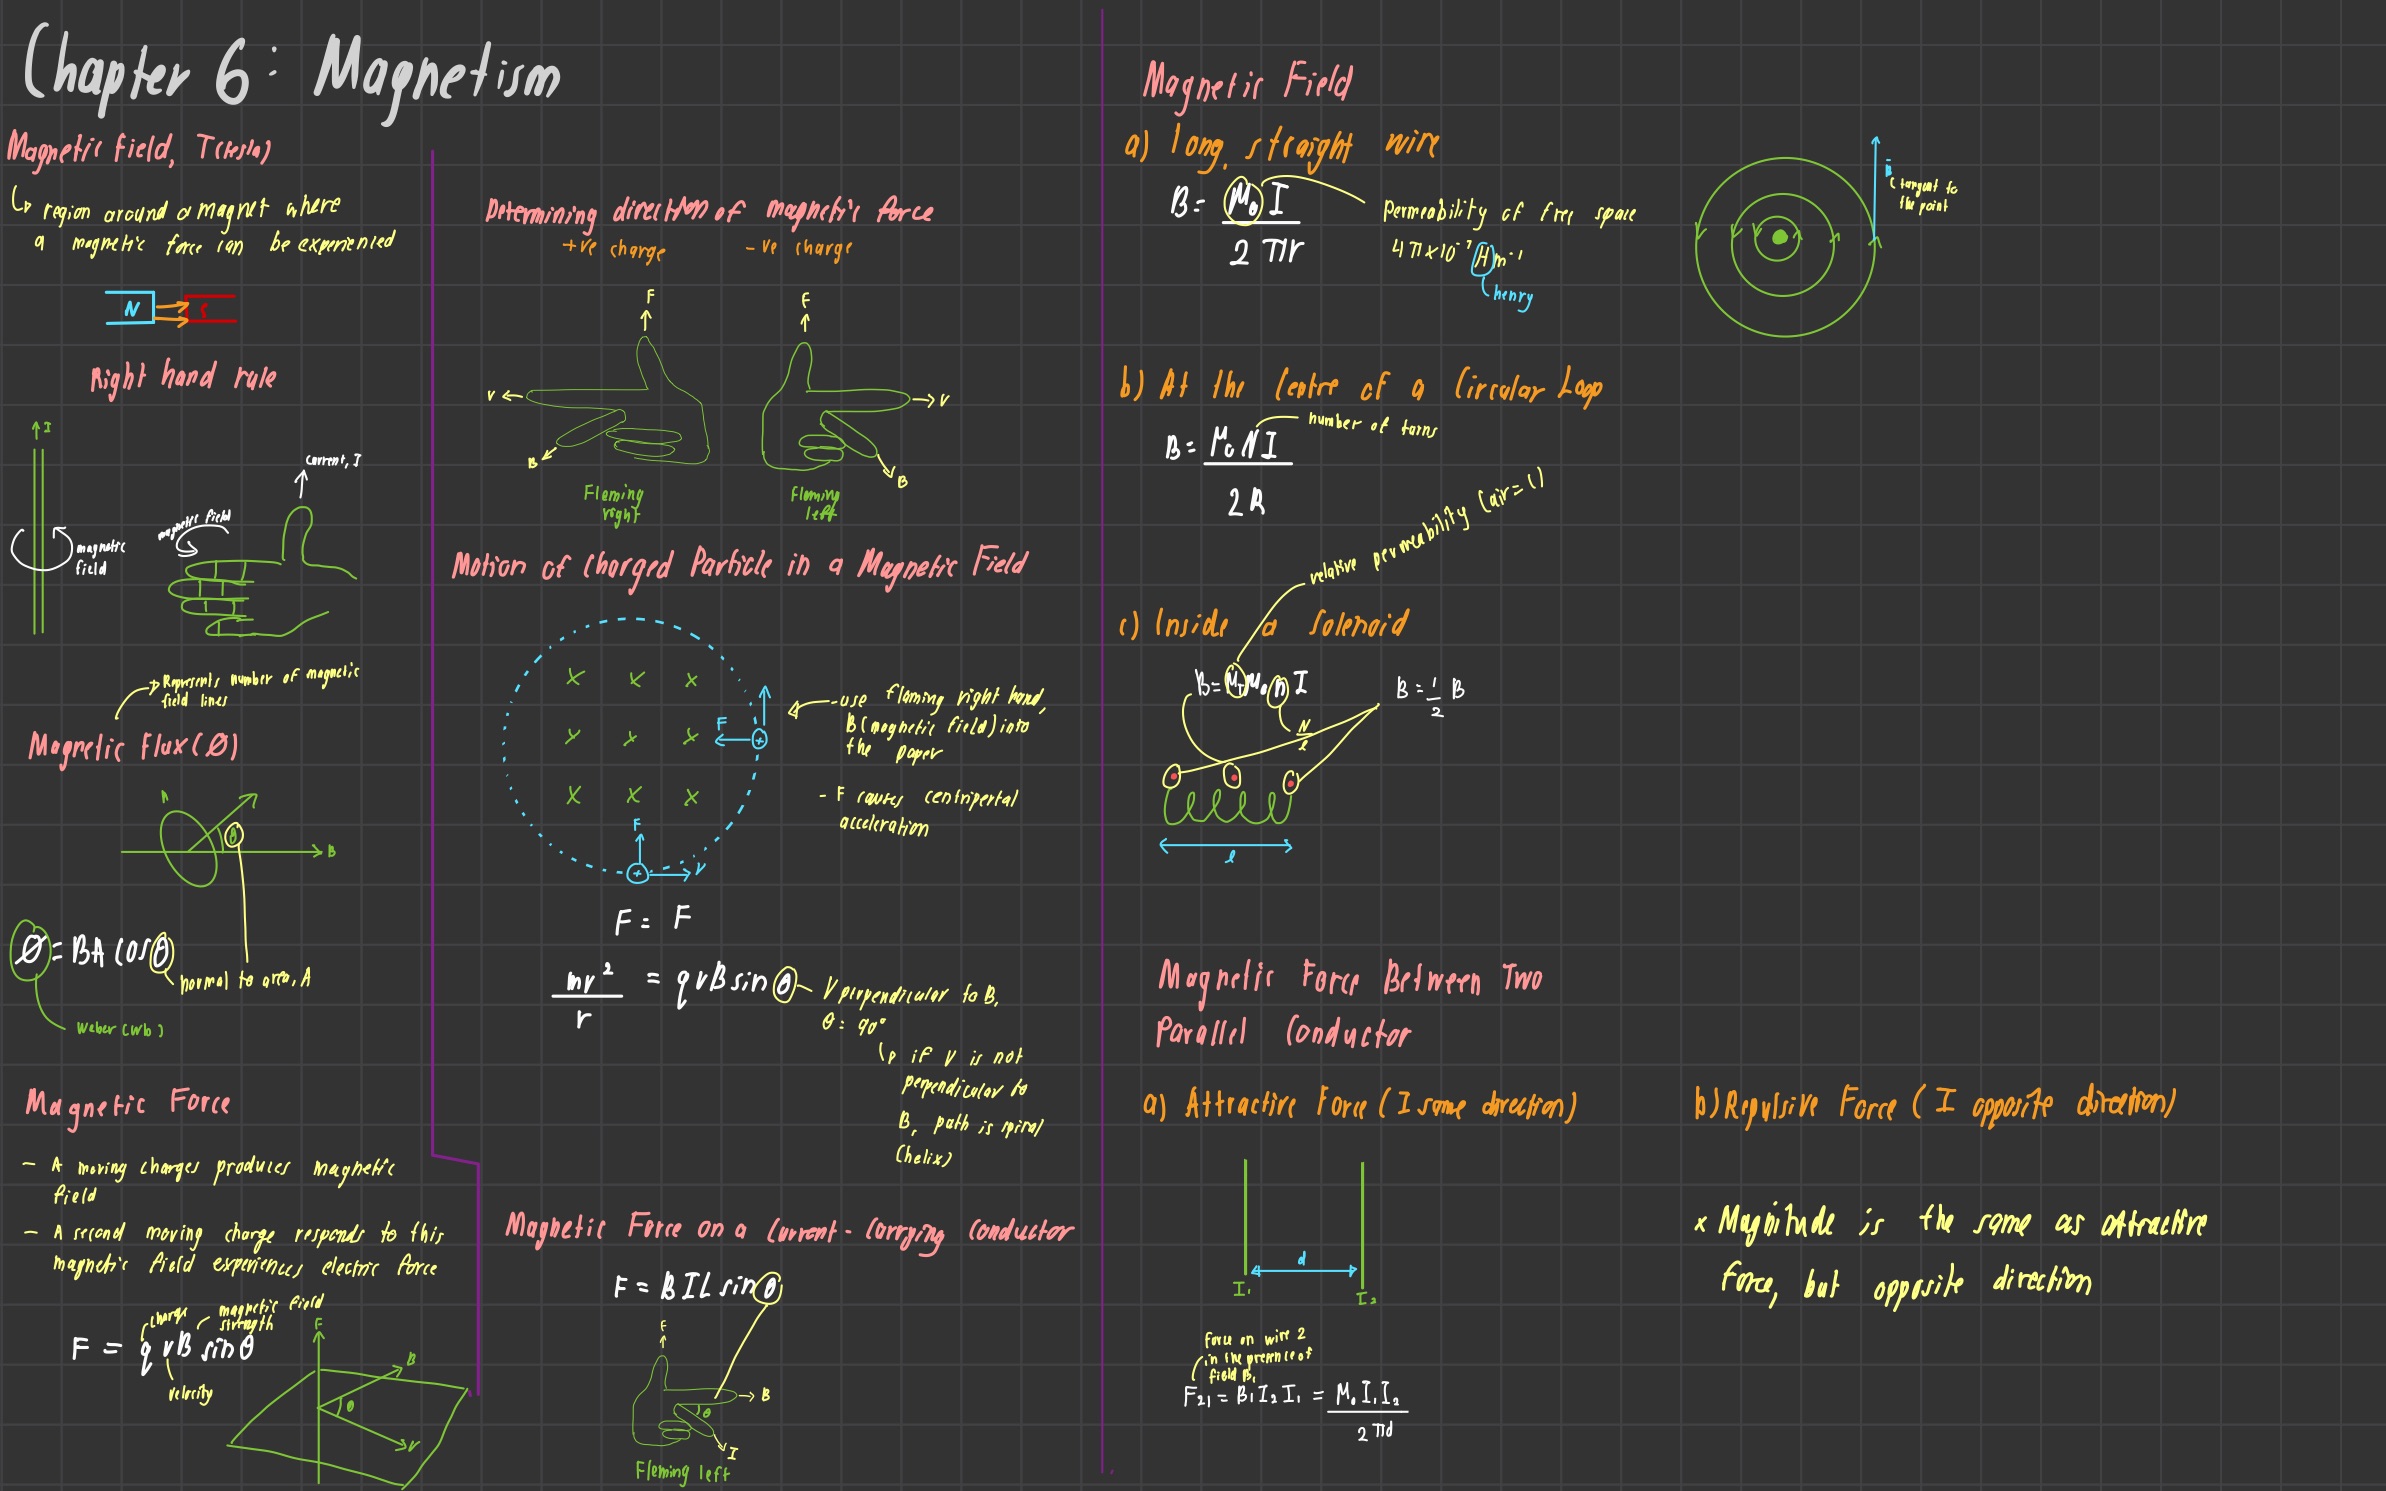 Chapter 6: Magnetism
Magnetic field, T(tesla)
region around a magnet where
a magnetic force can be experienied
N
S
Right hand rule
I
magnetic
field
Current, I
magnetic field
Represents number of magnetic
field lines
Magnetic Flux (Ø)
A
θ
B
Ø = BA cos θ
normal to area, A
Weber (Wb)
Magnetic Force
- A moving charges produces magnetic
field
- A second moving charge responds to this
magnetic field experiences electric force
charge
magnetic field
strength
F = qvB sinθ
velocity
F
B
θ
V
Determining direction of magnetic force
+ve charge
-ve charge
F
V
B
Fleming
right
F
V
B
Fleming
left
Motion of Charged Particle in a Magnetic Field
x x x
x x x
x x x
F
+
F
+
V
- use flaming right hand,
B (magnetic field) into
the paper
- F causes centripertal
acceleration
F = F
mv² / r = qvB sin θ
V perpendicular to B,
θ = 90°
if V is not
perpendicular to
B, path is spiral
(helix)
Magnetic Force on a Current-Carrying Conductor
F = BIL sin θ
F
B
θ
I
Fleming left
Magnetic Field
a) long, straight wire
B = μ₀I / 2πr
Permeability of free space
4π×10⁻⁷ Hm⁻¹
henry
B
tangent to
the point
b) At the Centre of a Circular Loop
B = μ₀NI / 2R
number of turns
relative permeability (air=1)
c) Inside a Solenoid
B = μᵣμ₀nI
N / l
B = 1/2 B
l
Magnetic Force Between Two
Parallel Conductor
a) Attractive Force (I same direction)
d
I₁
I₂
Force on wire 2
in the presence of
field B₁
F₂₁ = B₁I₂I₁ = μ₀I₁I₂ / 2πd
b) Repulsive Force (I opposite direction)
x Magnitude is the same as attractive
force, but opposite direction